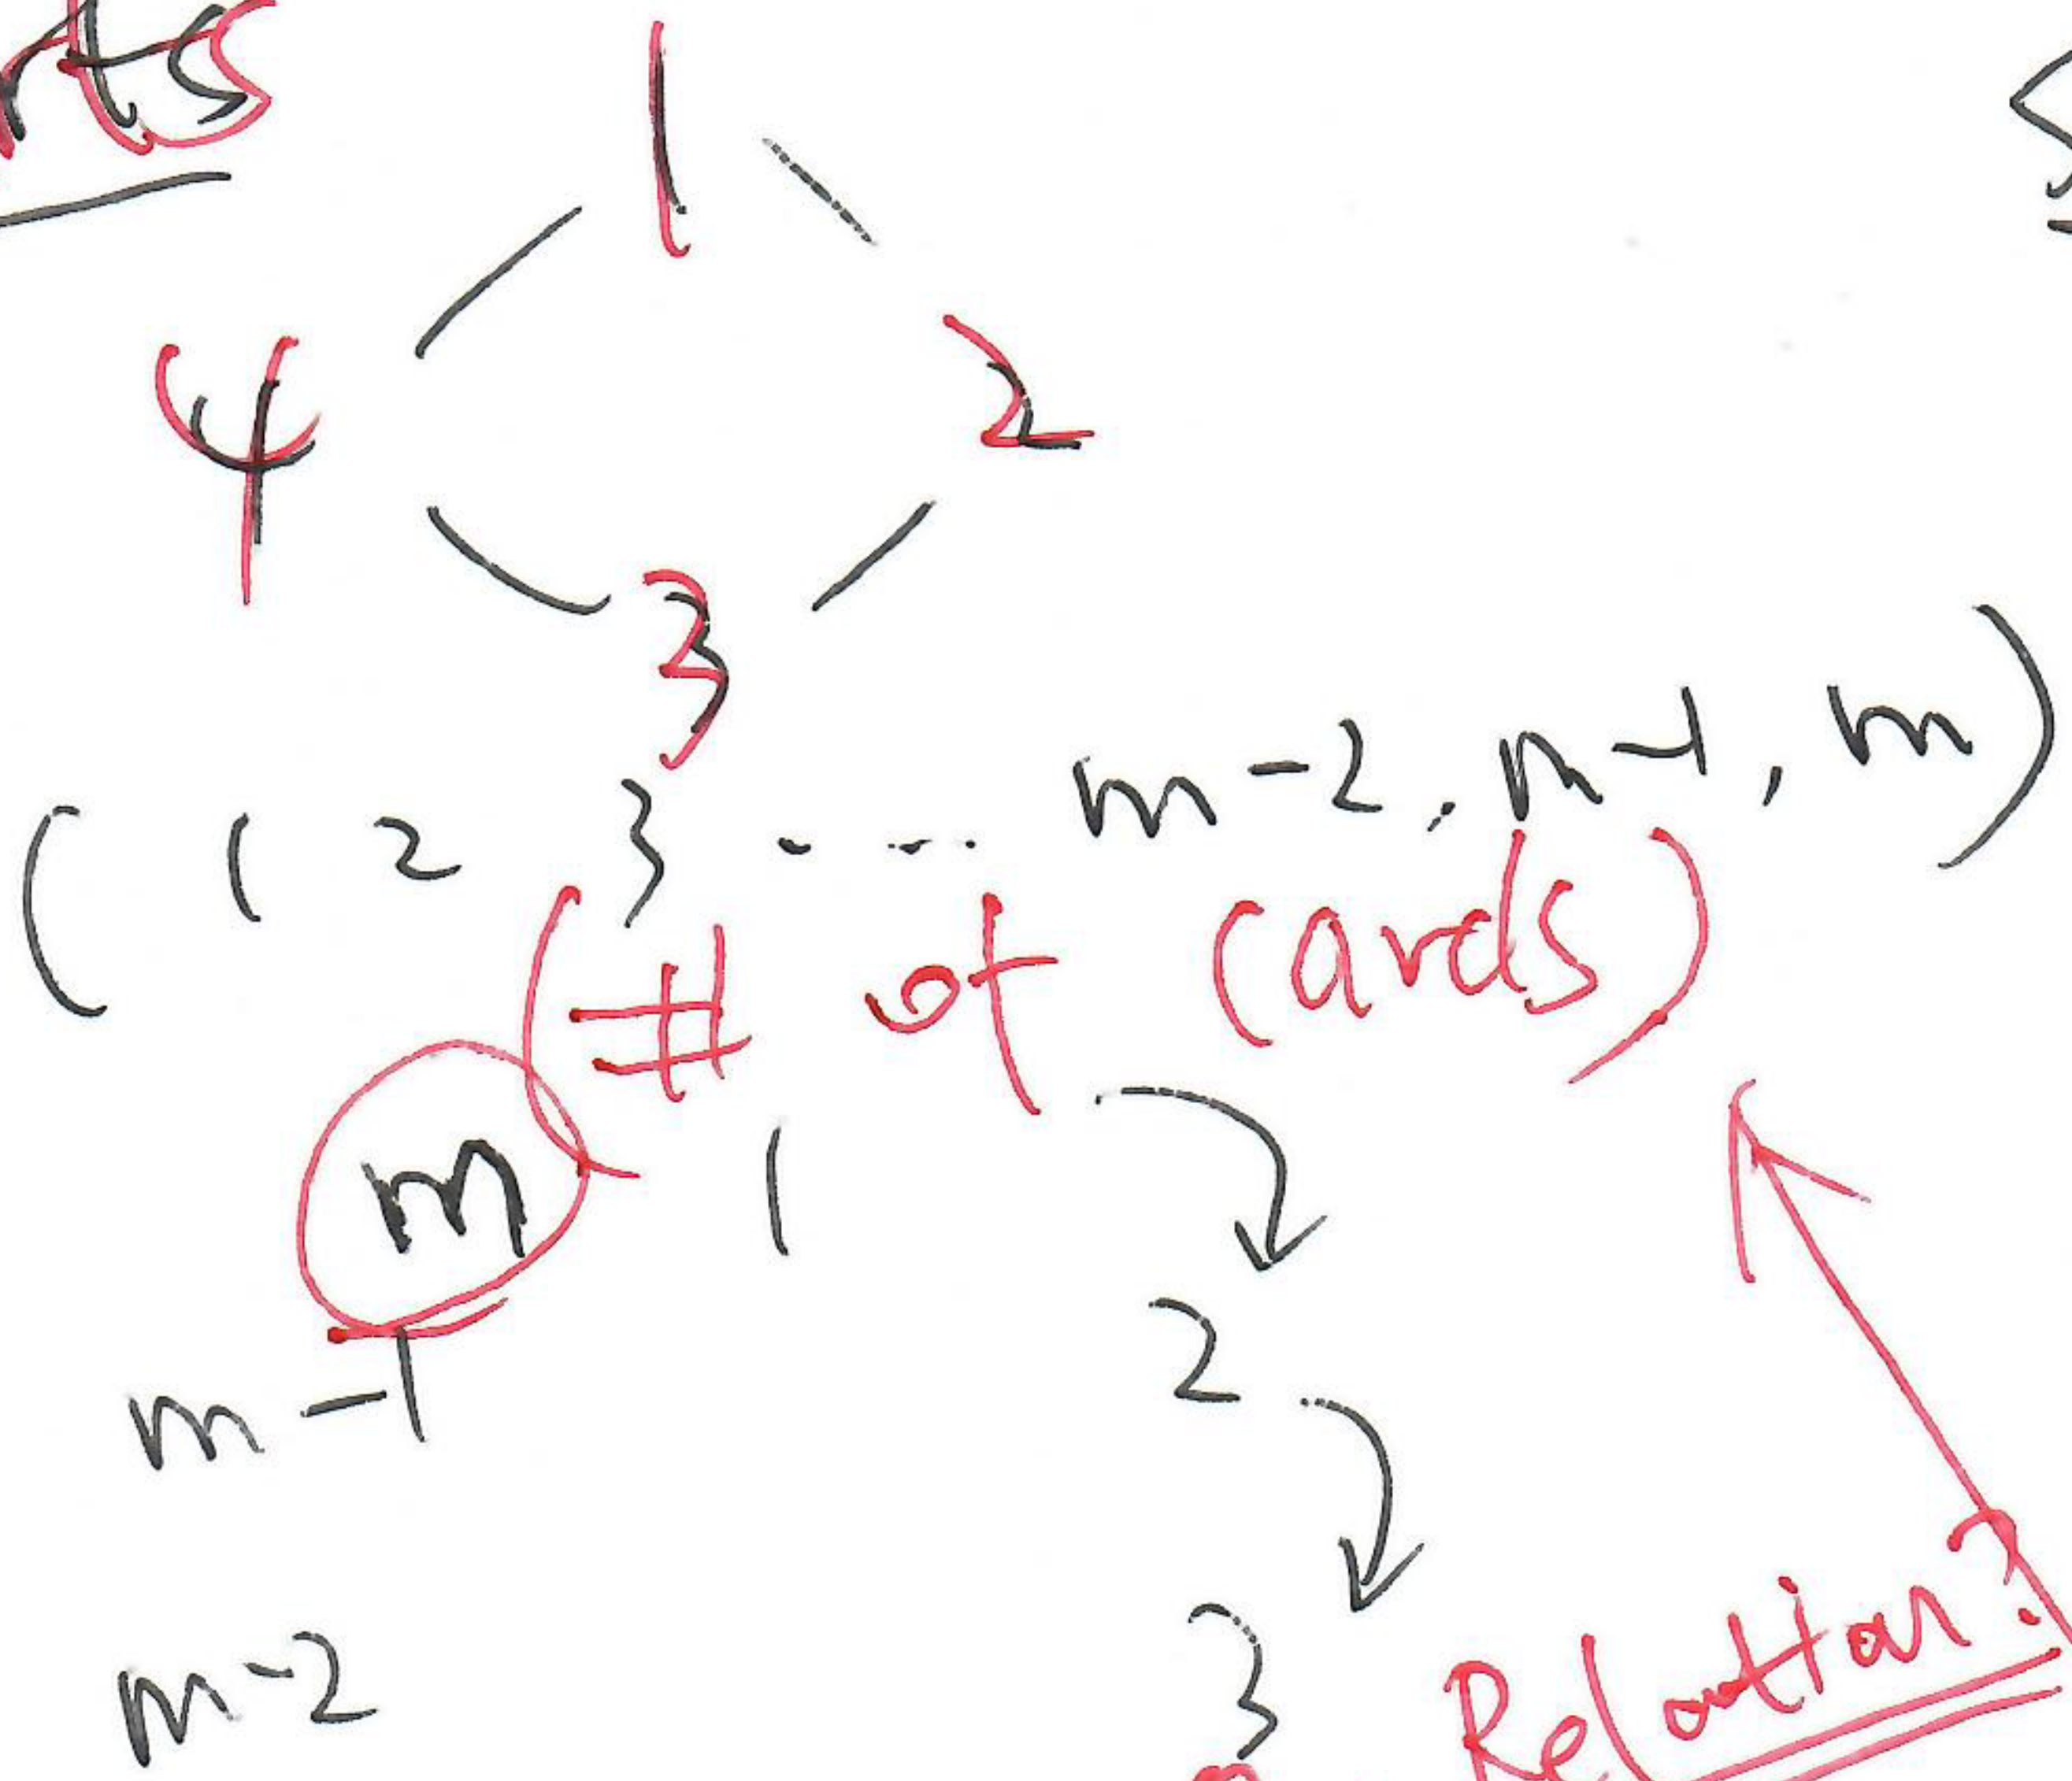 1
4 2
3
( 1 2 3 ... m-2, m-1, m )
(# of cards)
m 1
m-1 2
m-2 3
Relation?